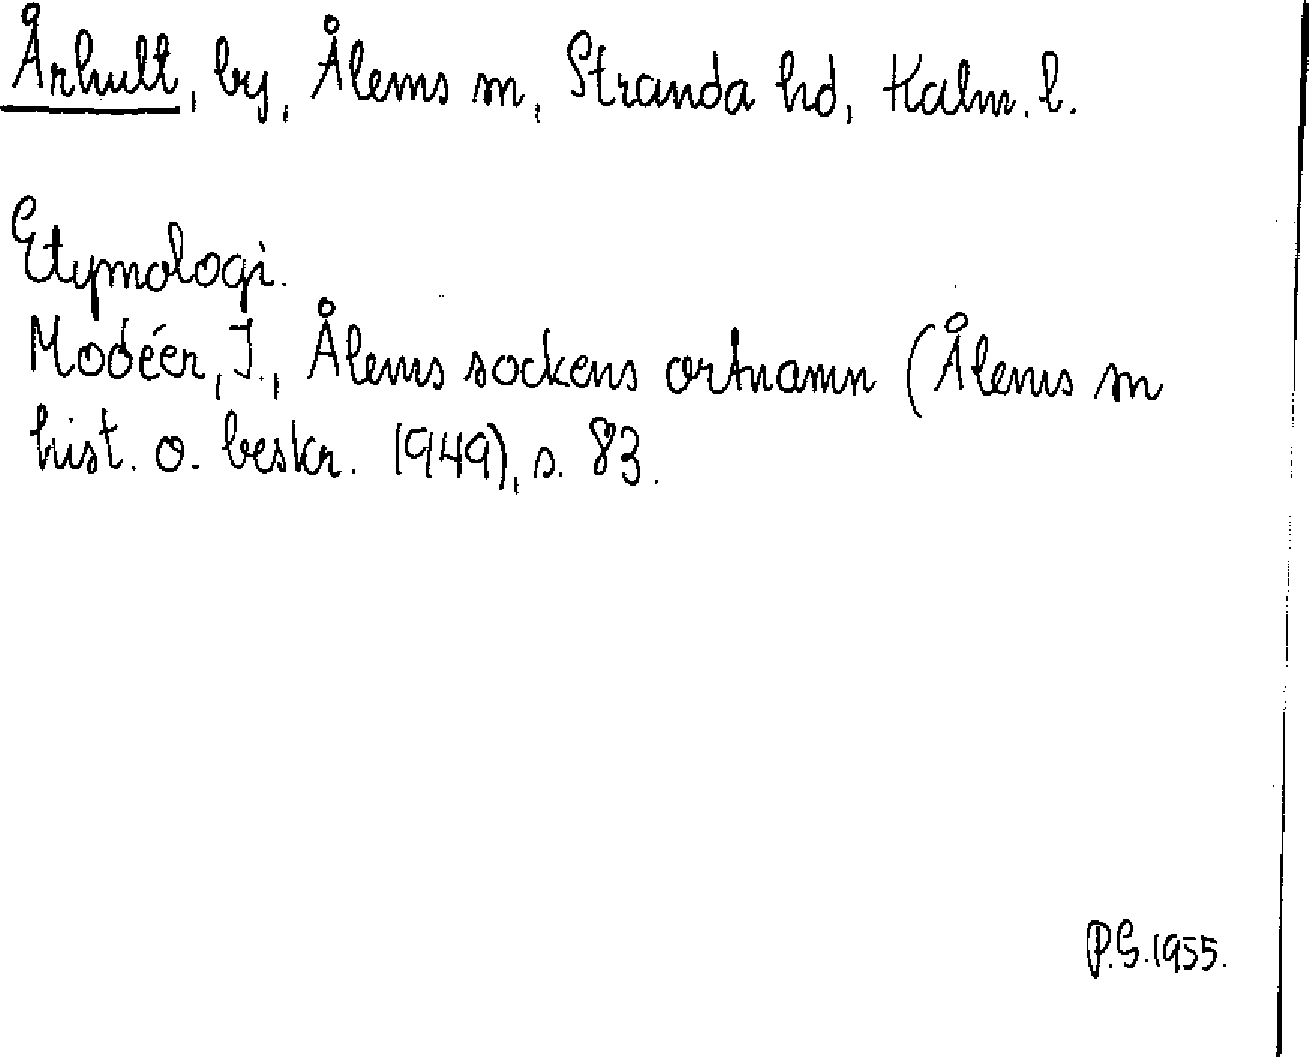 Århult, by, Ålems sn, Stranda hd, Kalm. l.
Etymologi.
Modéer, I., Ålems sockens ortnamn (Ålems sn
hist. o. beskr. 1949), s. 83.
P.G. 1955.